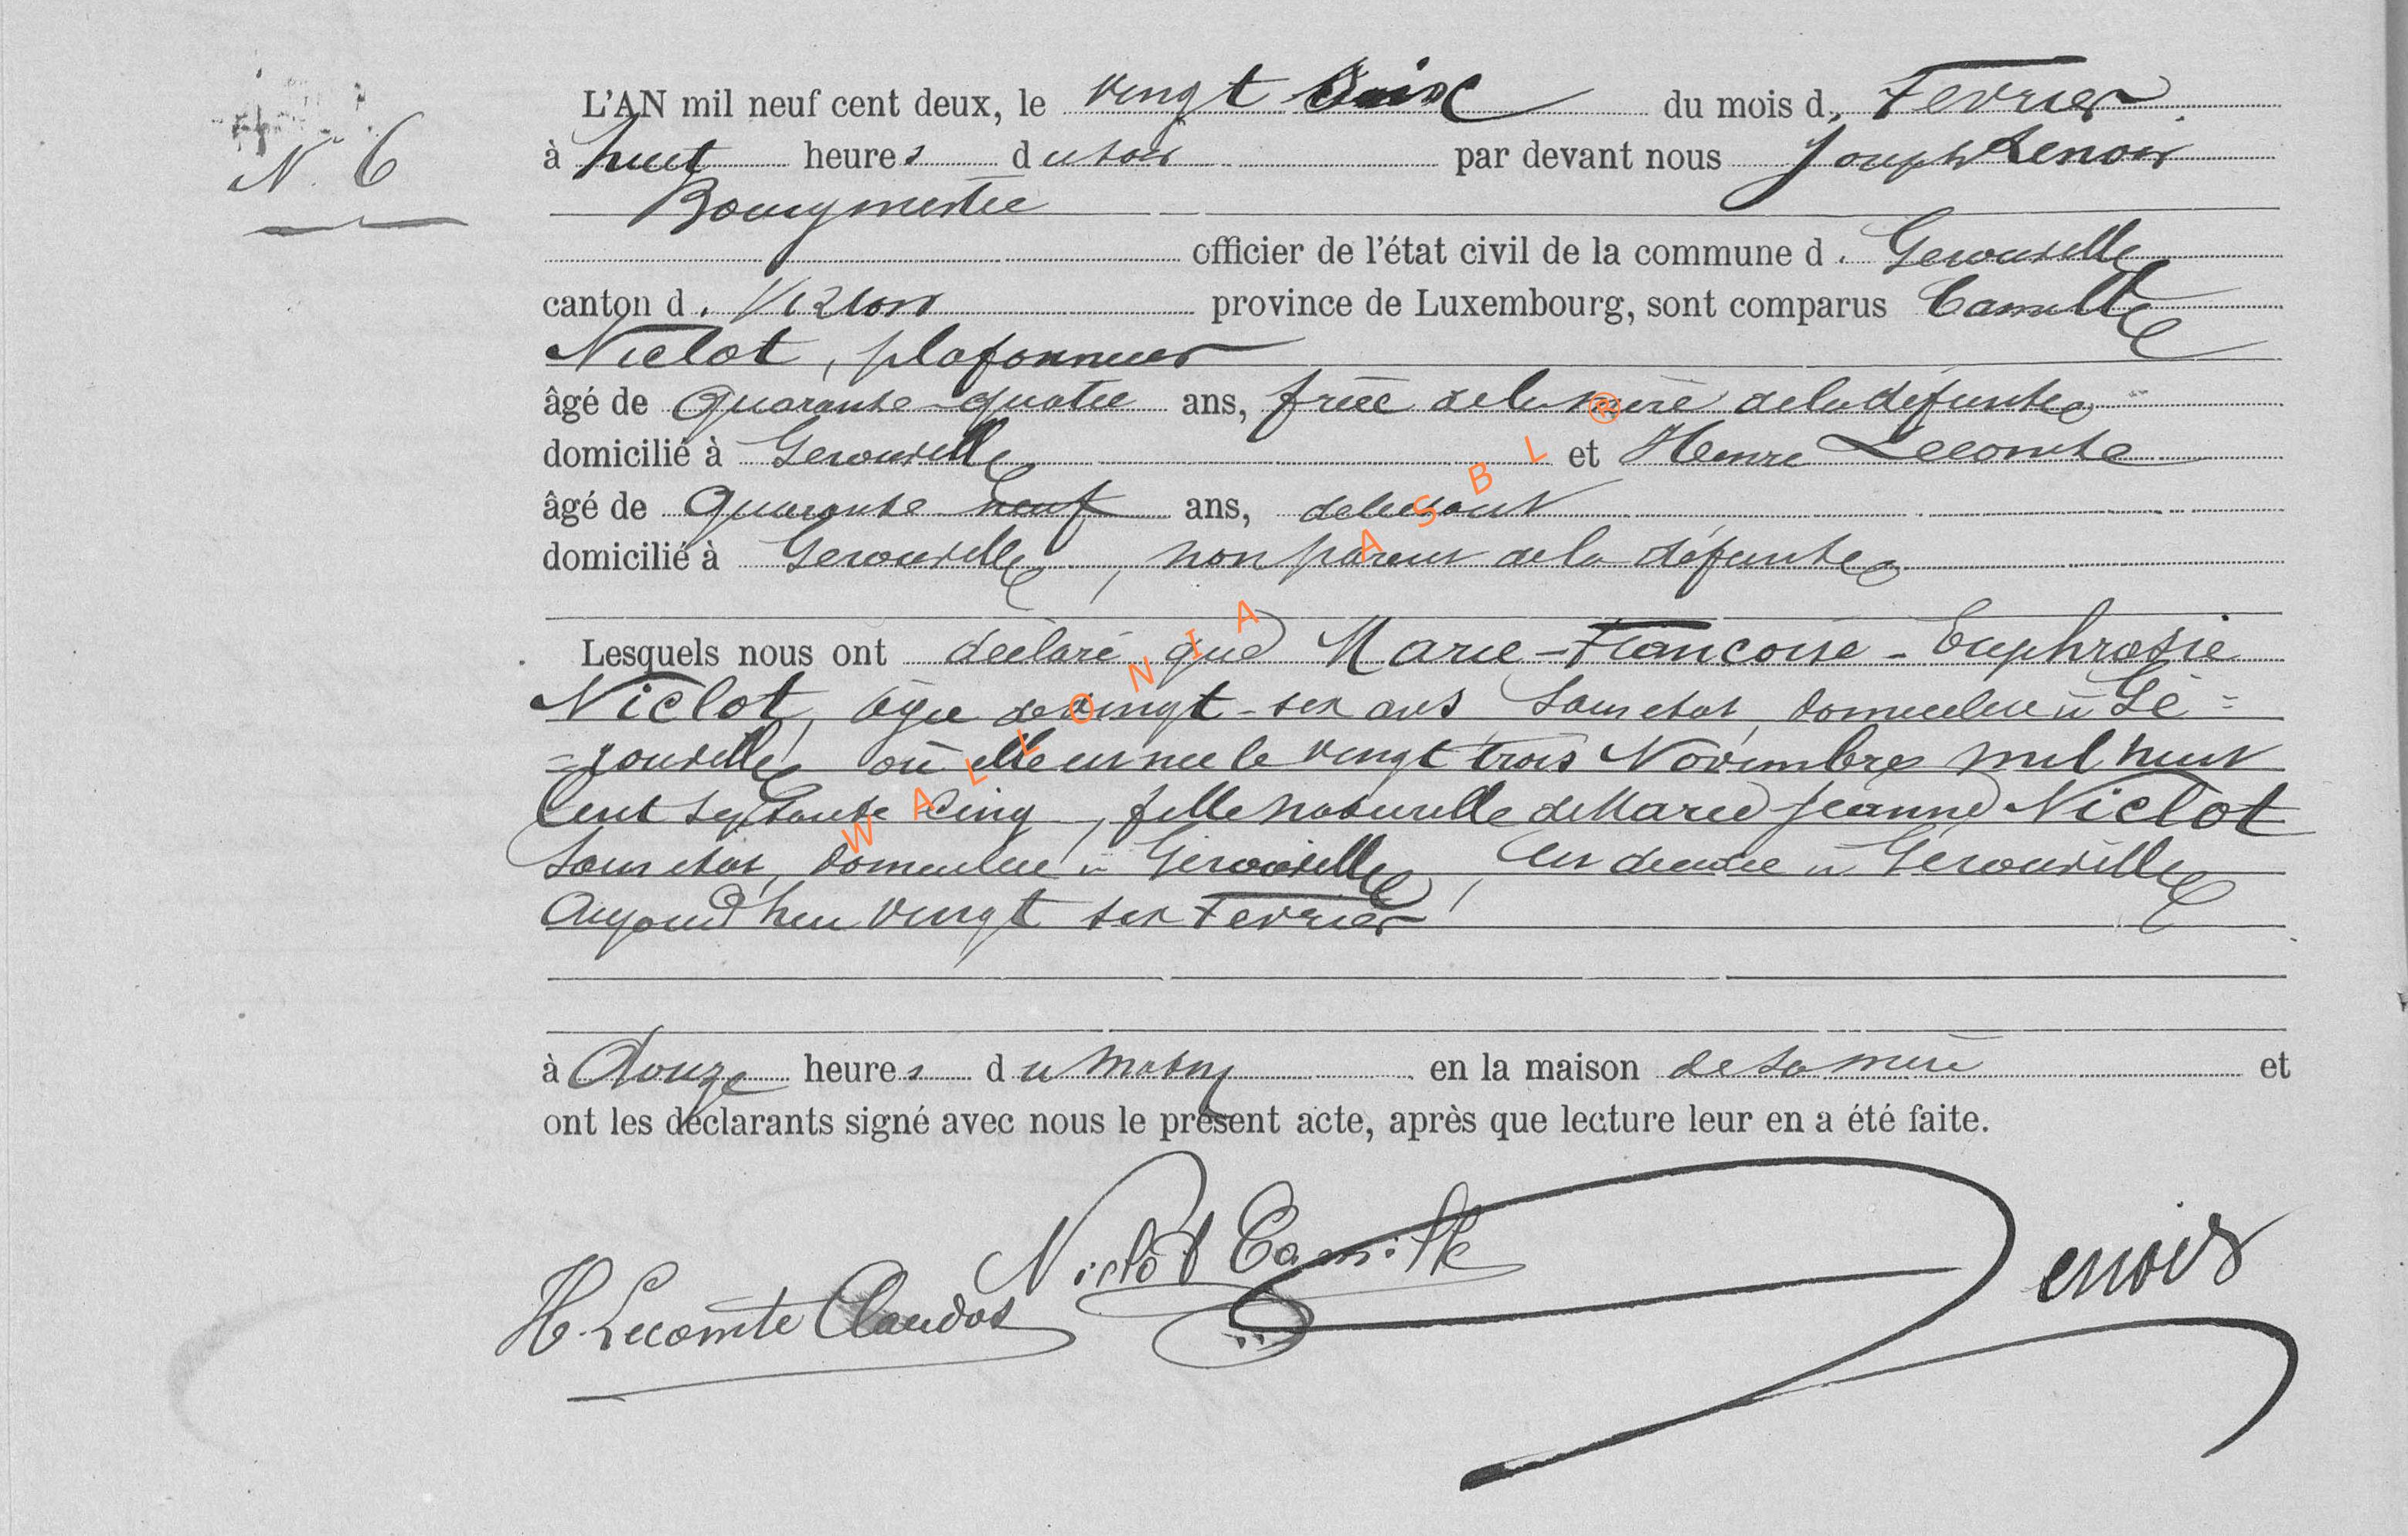 N° 6
L'AN mil neuf cent deux, le vingt six du mois d. Fevrier
à huit heures du soir par devant nous Joseph Lenoir
Bourgmestre
officier de l'état civil de la commune d. Gerouville
canton d. Virton province de Luxembourg, sont comparus Camille
Niclot, plafonneur
âgé de quarante-quatre ans, frère de la mère de la défunte
domicilié à Gerouville et Henri Lecomte
âgé de quarante neuf ans, debitant
domicilié à Gerouville, non parent de la défunte
Lesquels nous ont déclaré que Marie-Francoise-Euphrosie
Niclot, âgée de vingt-six ans sans etat, domiciliée à Gé=
=rouville où elle est née le vingt trois Novembre mil huit
Cent septante cinq, fille naturelle de Marie Jeanne Niclot
sans etat, domiciliée à Gerouville, est décédée à Gerouville
Aujourd'hui vingt six Fevrier
à douze heures du matin en la maison de sa mère et
ont les déclarants signé avec nous le présent acte, après que lecture leur en a été faite.
Niclot Camille
H. Lecomte Claudot
Lenoir
WALLONIA ASBL ®